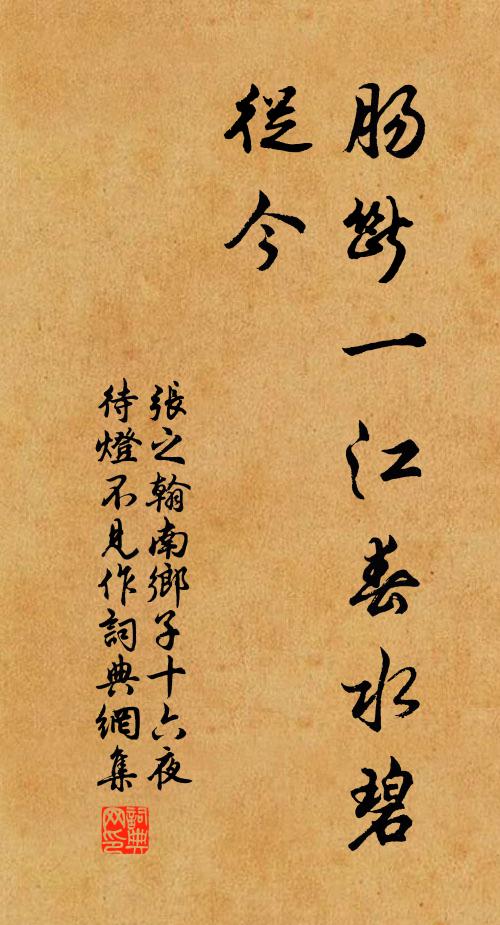 腸斷一江春水碧
從今
張之翰南鄉子十六夜
待燈不見作詞典網集
詞典
网印